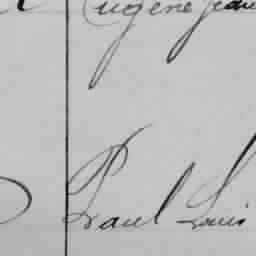 Eugène Jean
Paul Louis